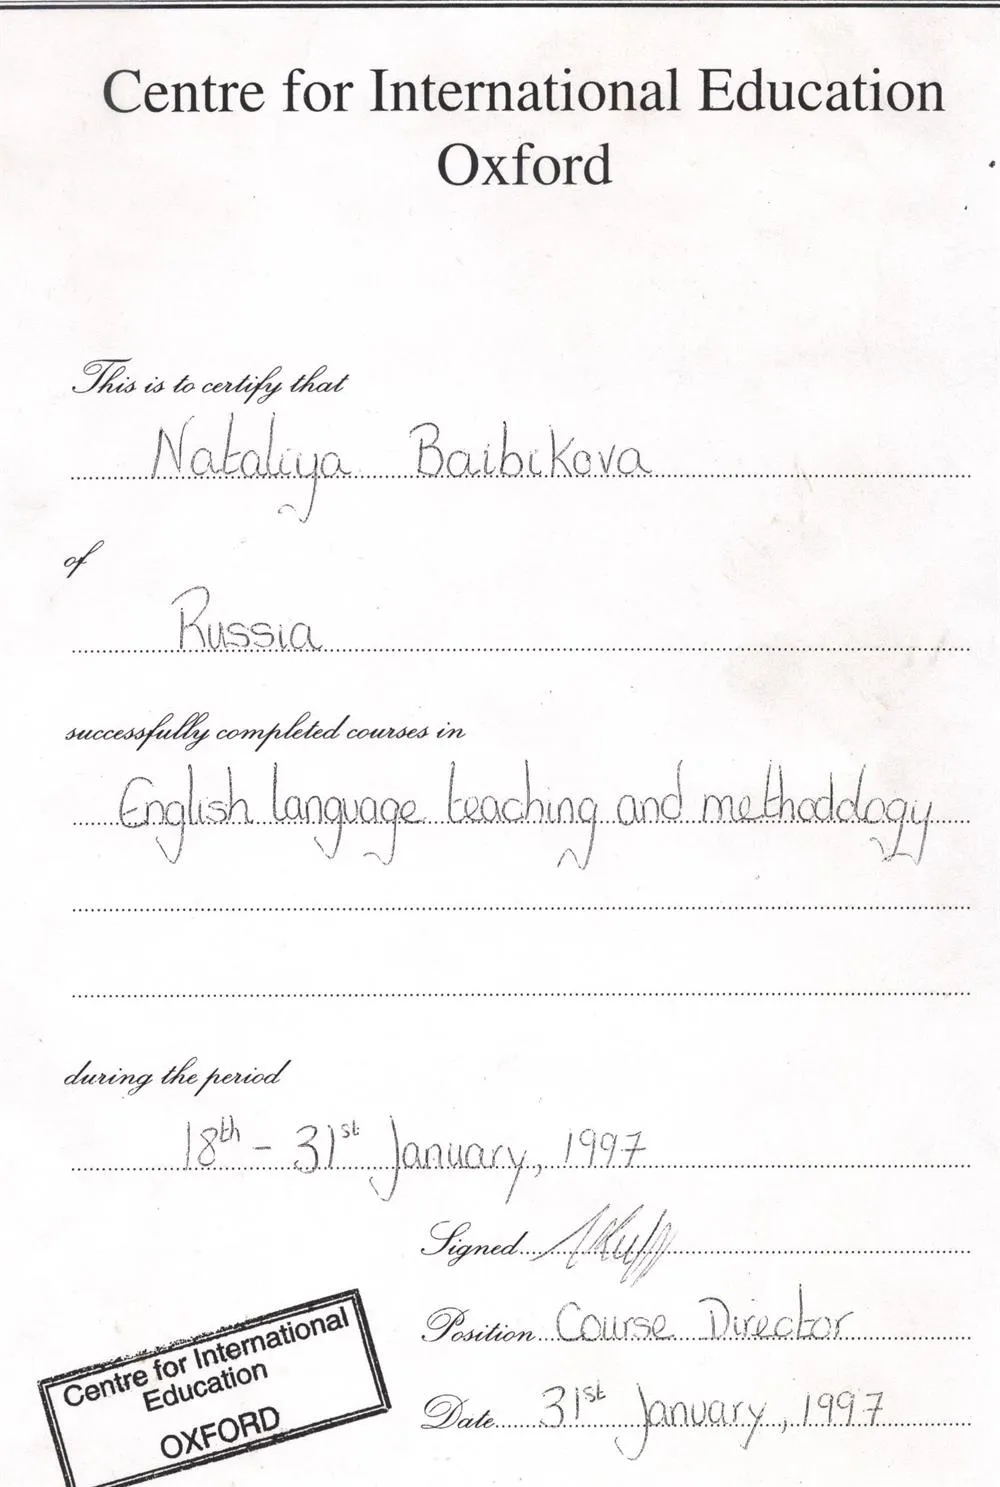 Centre for International Education
Oxford
This is to certify that
Nataliya Baibikova
of
Russia
successfully completed courses in
English language teaching and methodology
during the period
18th - 31st January, 1997
Signed
Position Course Director
Date 31st January, 1997
Centre for International
Education
OXFORD